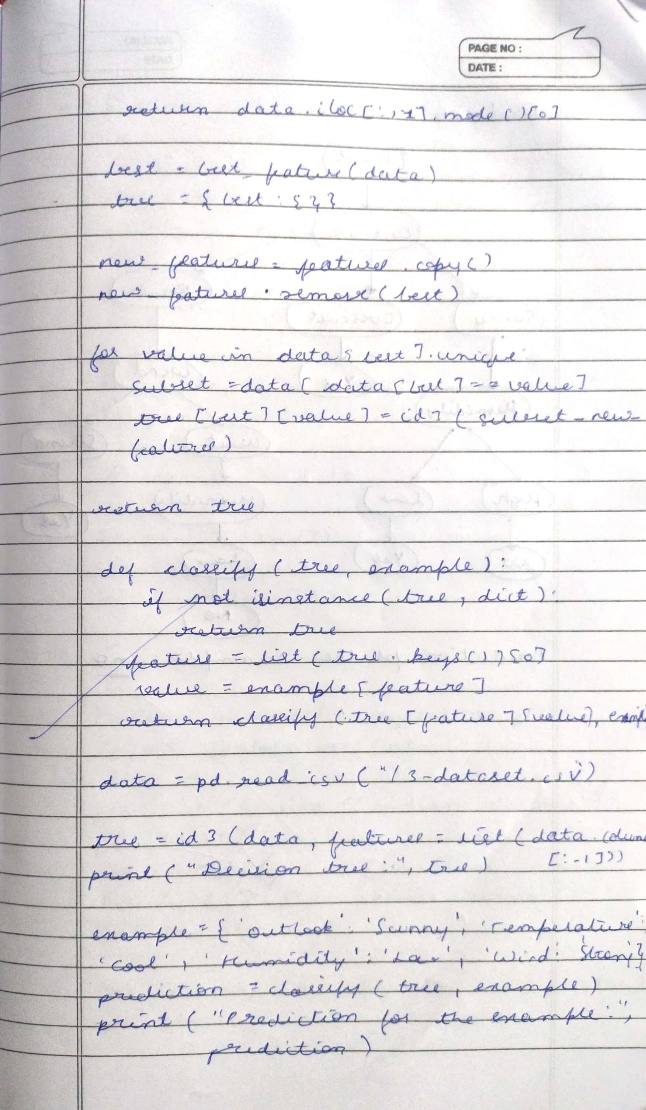 PAGE NO :
DATE :
return data.iloc[:,-1].mode()[0]
best = best_feature(data)
tree = { best : {}}
new_features = features.copy()
new_features.remove(best)
for value in data[best].unique
subset = data[data[best] == value]
tree[best][value] = id3(subset_new_
features)
return tree
def classify(tree, example):
if not isinstance(tree, dict):
return tree
feature = list(tree.keys())[0]
value = example[feature]
return classify(tree[feature][value], exampl
data = pd.read_csv("/3-dataset.csv)
tree = id3(data, features = list(data.colum
print("Decision tree :", tree) [:-1]))
example = { 'outlook' : 'Sunny', 'Temperature':
'cool', 'Humidity' : 'Low', 'Wind: 'Strong'}
prediction = classify(tree, example)
print("Prediction for the example:",
prediction)